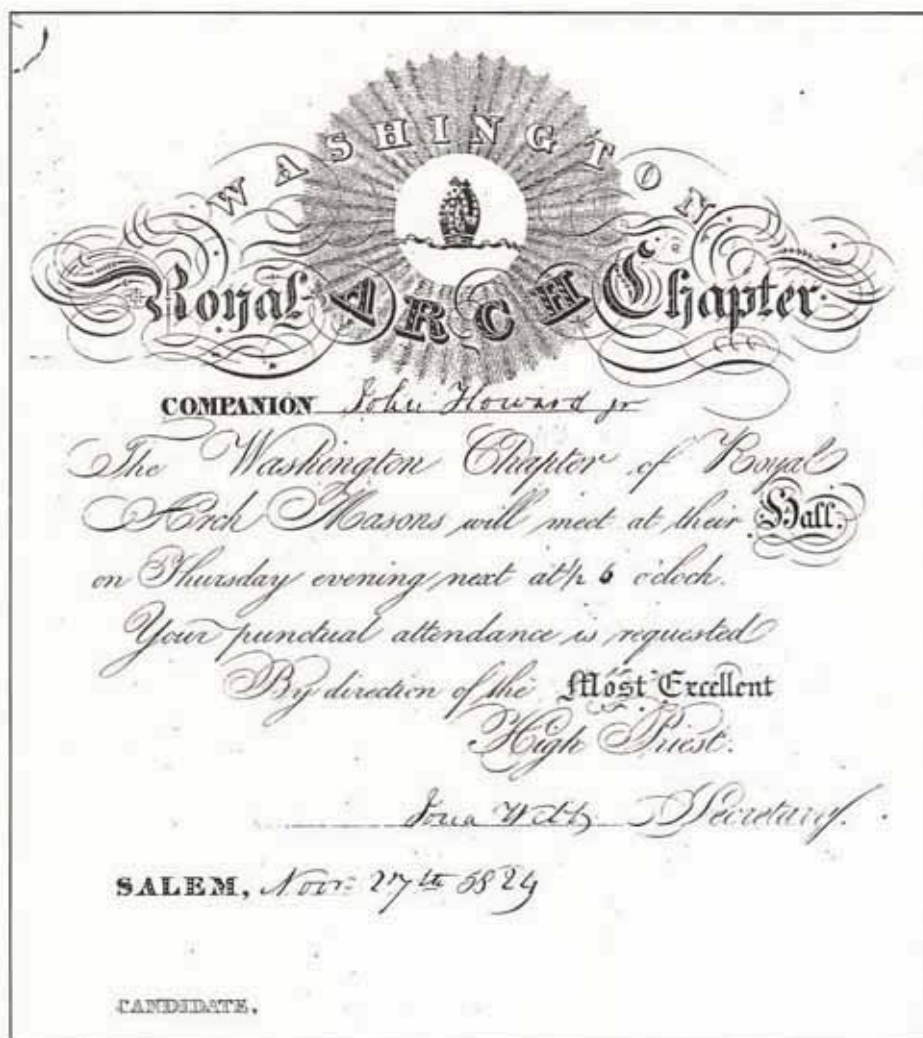 WASHINGTON
Royal ARCH Chapter
COMPANION John Howard jr
The Washington Chapter of Royal
Arch Masons will meet at their Hall.
on Thursday evening next at ½ 6 o'clock.
Your punctual attendance is requested
By direction of the Most Excellent
High Priest.
Webb Secretary.
SALEM, Novr 27th 5824
CANDIDATE.